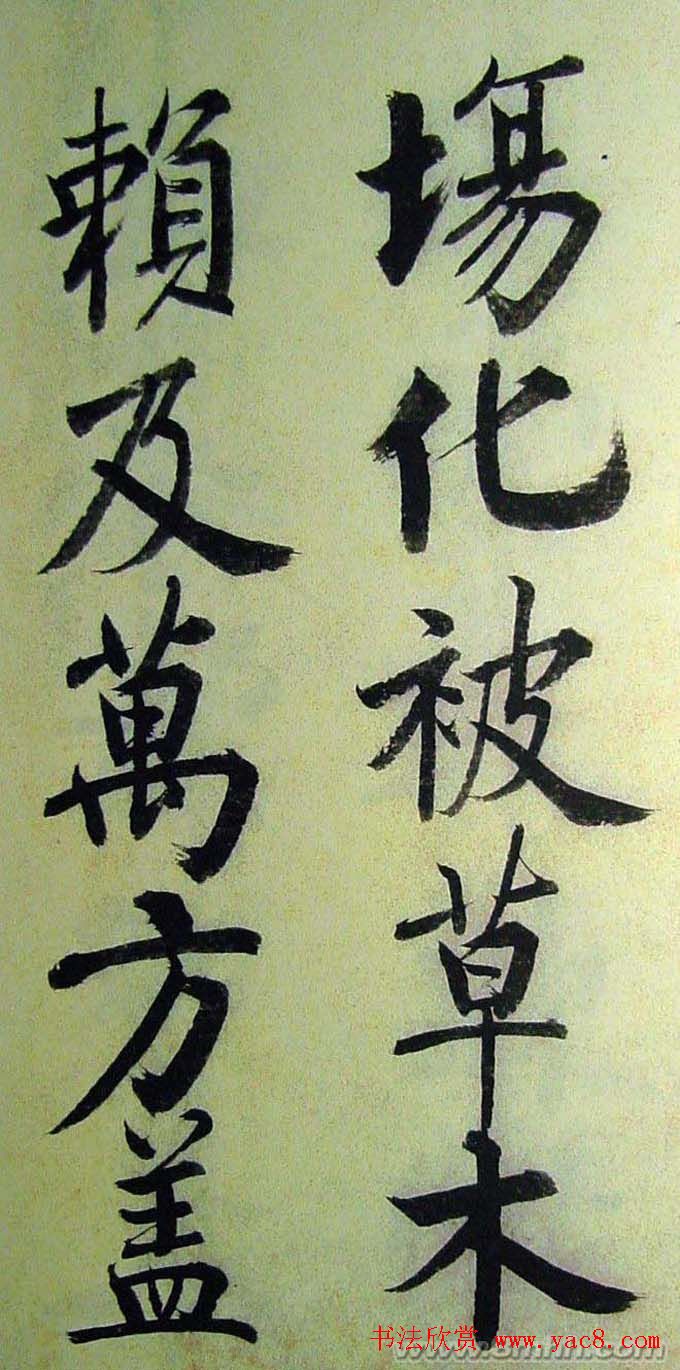 塲化被草木
賴及萬方盖
书法欣赏 www.yac8.com